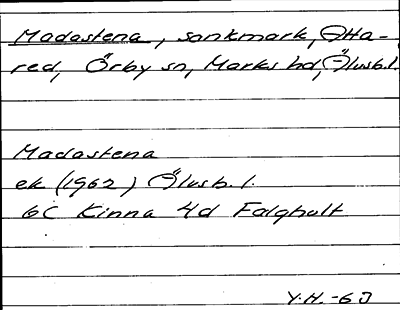 Madastena, sankmark, Ha-
red, Örby sn, Marks hd, Älvsb.l.
Madastena
ek (1962) Älvsb. l.
6C Kinna 4d Falghult
Y.H. -63